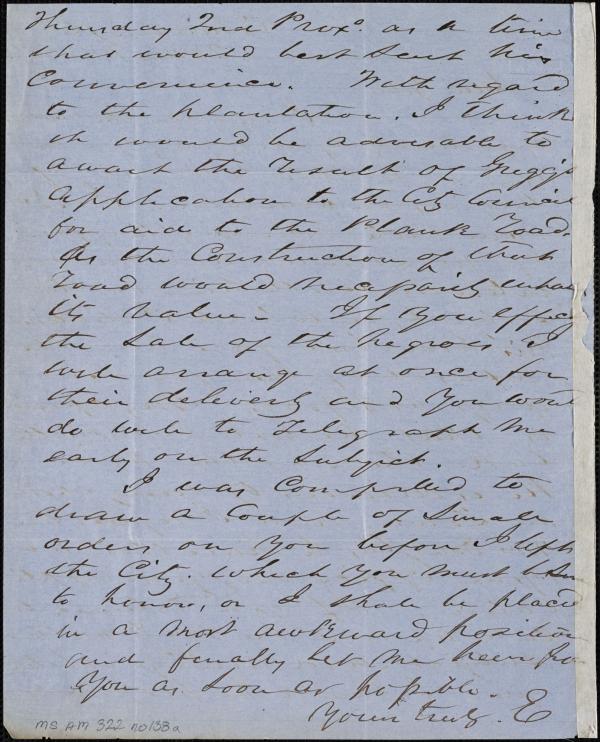 Thursday 2nd Proxo. as a time
that would best suit his
Convenience. With regard
to the plantation. I think
it would be advisable to
await the result of Gregg's
application to the City Council
for aid to the Plank Road.
As the Construction of that
Road would necessarily enhan
its value - If you effec
the sale of the negroes I
will arrange at once for
their delivery and you woul
do well to Telegraph me
early on the subject.
I was compelled to
draw a couple of small
orders on you before I left
the City. which you must
to honor, or I shall be placed
in a most awkward position
and finally let me hear fro
you as soon as possible.
Yours truly. E
MS AM 322 no 138a